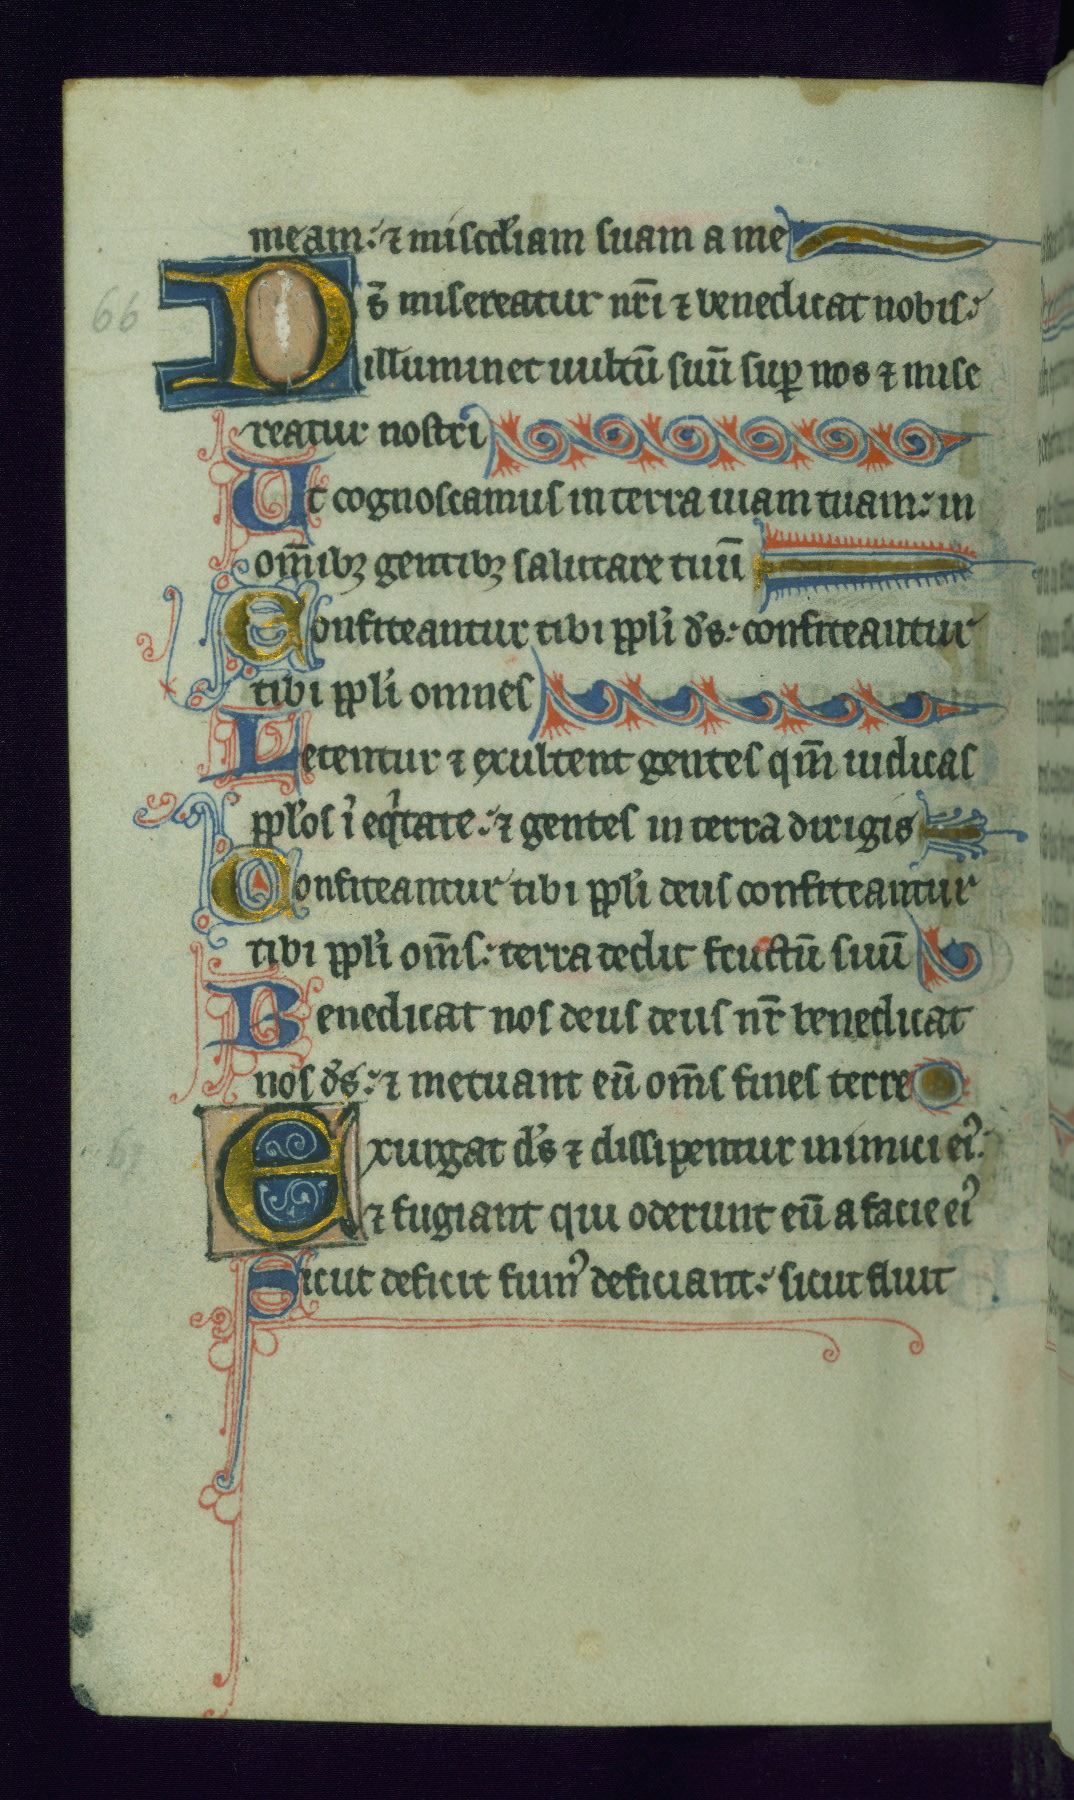 meam: ⁊ misc̄diam suam a me
66 Ds̄ misereatur nr̄i ⁊ benedicat nobis:
illuminet uultū suū suꝑ nos ⁊ mise
reatur nostri
Ut cognoscamus in terra uiam tuam: in
om̄ibꝫ gentibꝫ salutare tuū
Confiteantur tibi ppl'i d's: confiteantur
tibi ppl'i omnes
Letentur ⁊ exultent gentes qm̄ iudicas
ppl'os ī eqͥtate: ⁊ gentes in terra dirigis
Confiteantur tibi ppl'i deus confiteantur
tibi ppl'i om̄s: terra dedit fructū suū
Benedicat nos deus deus nr̄ benedicat
nos d's: ⁊ metuant eū om̄s fines terre
Exurgat d's ⁊ dissipentur inimici eiꝰ:
⁊ fugiant qui oderunt eū a facie eiꝰ
Sicut deficit fumꝰ deficiant: sicut fluit